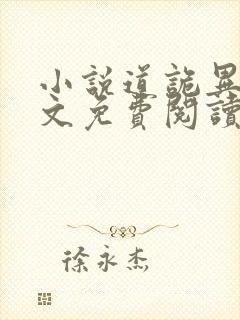 小說道詭異
文免費閱讀
徐永杰